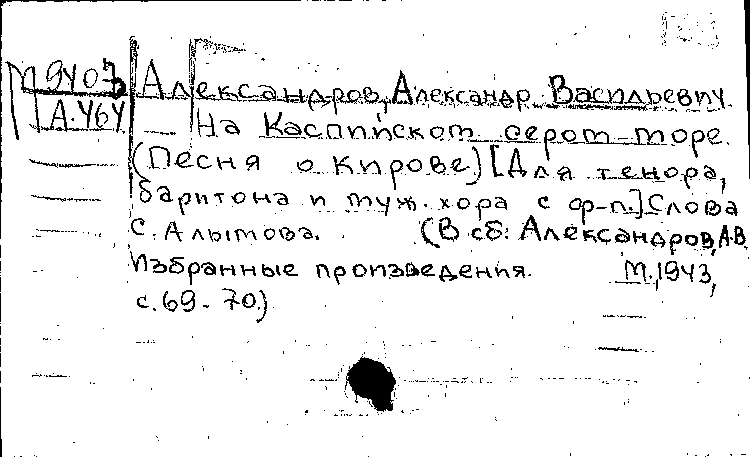 М9407 Александров, Александр Васильевич.
А.464 — На Каспийском сером море.
(Песня о Кирове.) [Для тенора,
баритона и муж. хора с ф-п.] Слова
С. Алымова. (В сб: Александров, А.В.
Избранные произведения. М., 1943,
с. 69-70.)